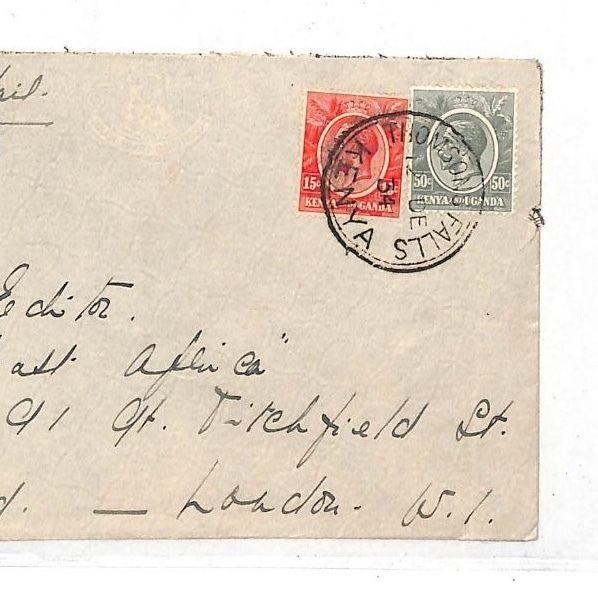 15c
KENYA AND UGANDA
50c 50c
KENYA AND UGANDA
THOMSON'S FALLS
12 DE
34
KENYA
Editor.
ast Africa"
91 Gt. Titchfield St.
d. — London. W.1.